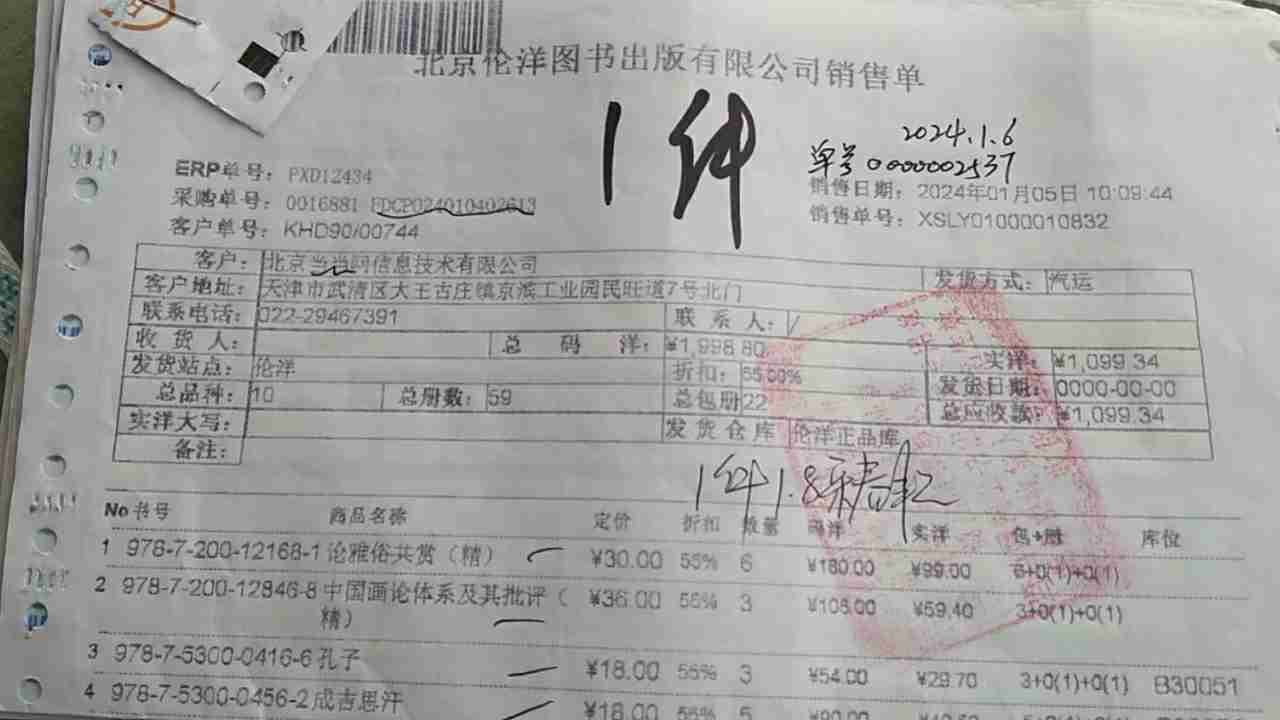 北京伦洋图书出版有限公司销售单
1件
2024.1.6
单号0000002537
ERP单号: PXD12434
采购单号: 0016881 FDCP024010402613
客户单号: KHD90/00744
销售日期: 2024年01月05日 10:09:44
销售单号: XSLY01000010832
客户: 北京当当网信息技术有限公司 发货方式: 汽运
客户地址: 天津市武清区大王古庄镇京滨工业园民旺道7号北门
联系电话: 022-29467391 联系人: /
收货人: 总码洋: ¥1,998.80 实洋: ¥1,099.34
发货站点: 伦洋 折扣: 55.00% 发货日期: 0000-00-00
总品种: 10 总册数: 59 总包册 22 总应收款: ¥1,099.34
实洋大写: 发货仓库 伦洋正品库
备注:
1件1.8
No 书号 商品名称 定价 折扣 数量 码洋 实洋 包+册 库位
1 978-7-200-12168-1 论雅俗共赏(精) ¥30.00 55% 6 ¥180.00 ¥99.00 6+0(1)+0(1)
2 978-7-200-12846-8 中国画论体系及其批评( ¥36.00 55% 3 ¥108.00 ¥59.40 3+0(1)+0(1)
精)
3 978-7-5300-0416-6 孔子 ¥18.00 55% 3 ¥54.00 ¥29.70 3+0(1)+0(1) B30051
4 978-7-5300-0456-2 成吉思汗 ¥18.00 55% 5 ¥90.00